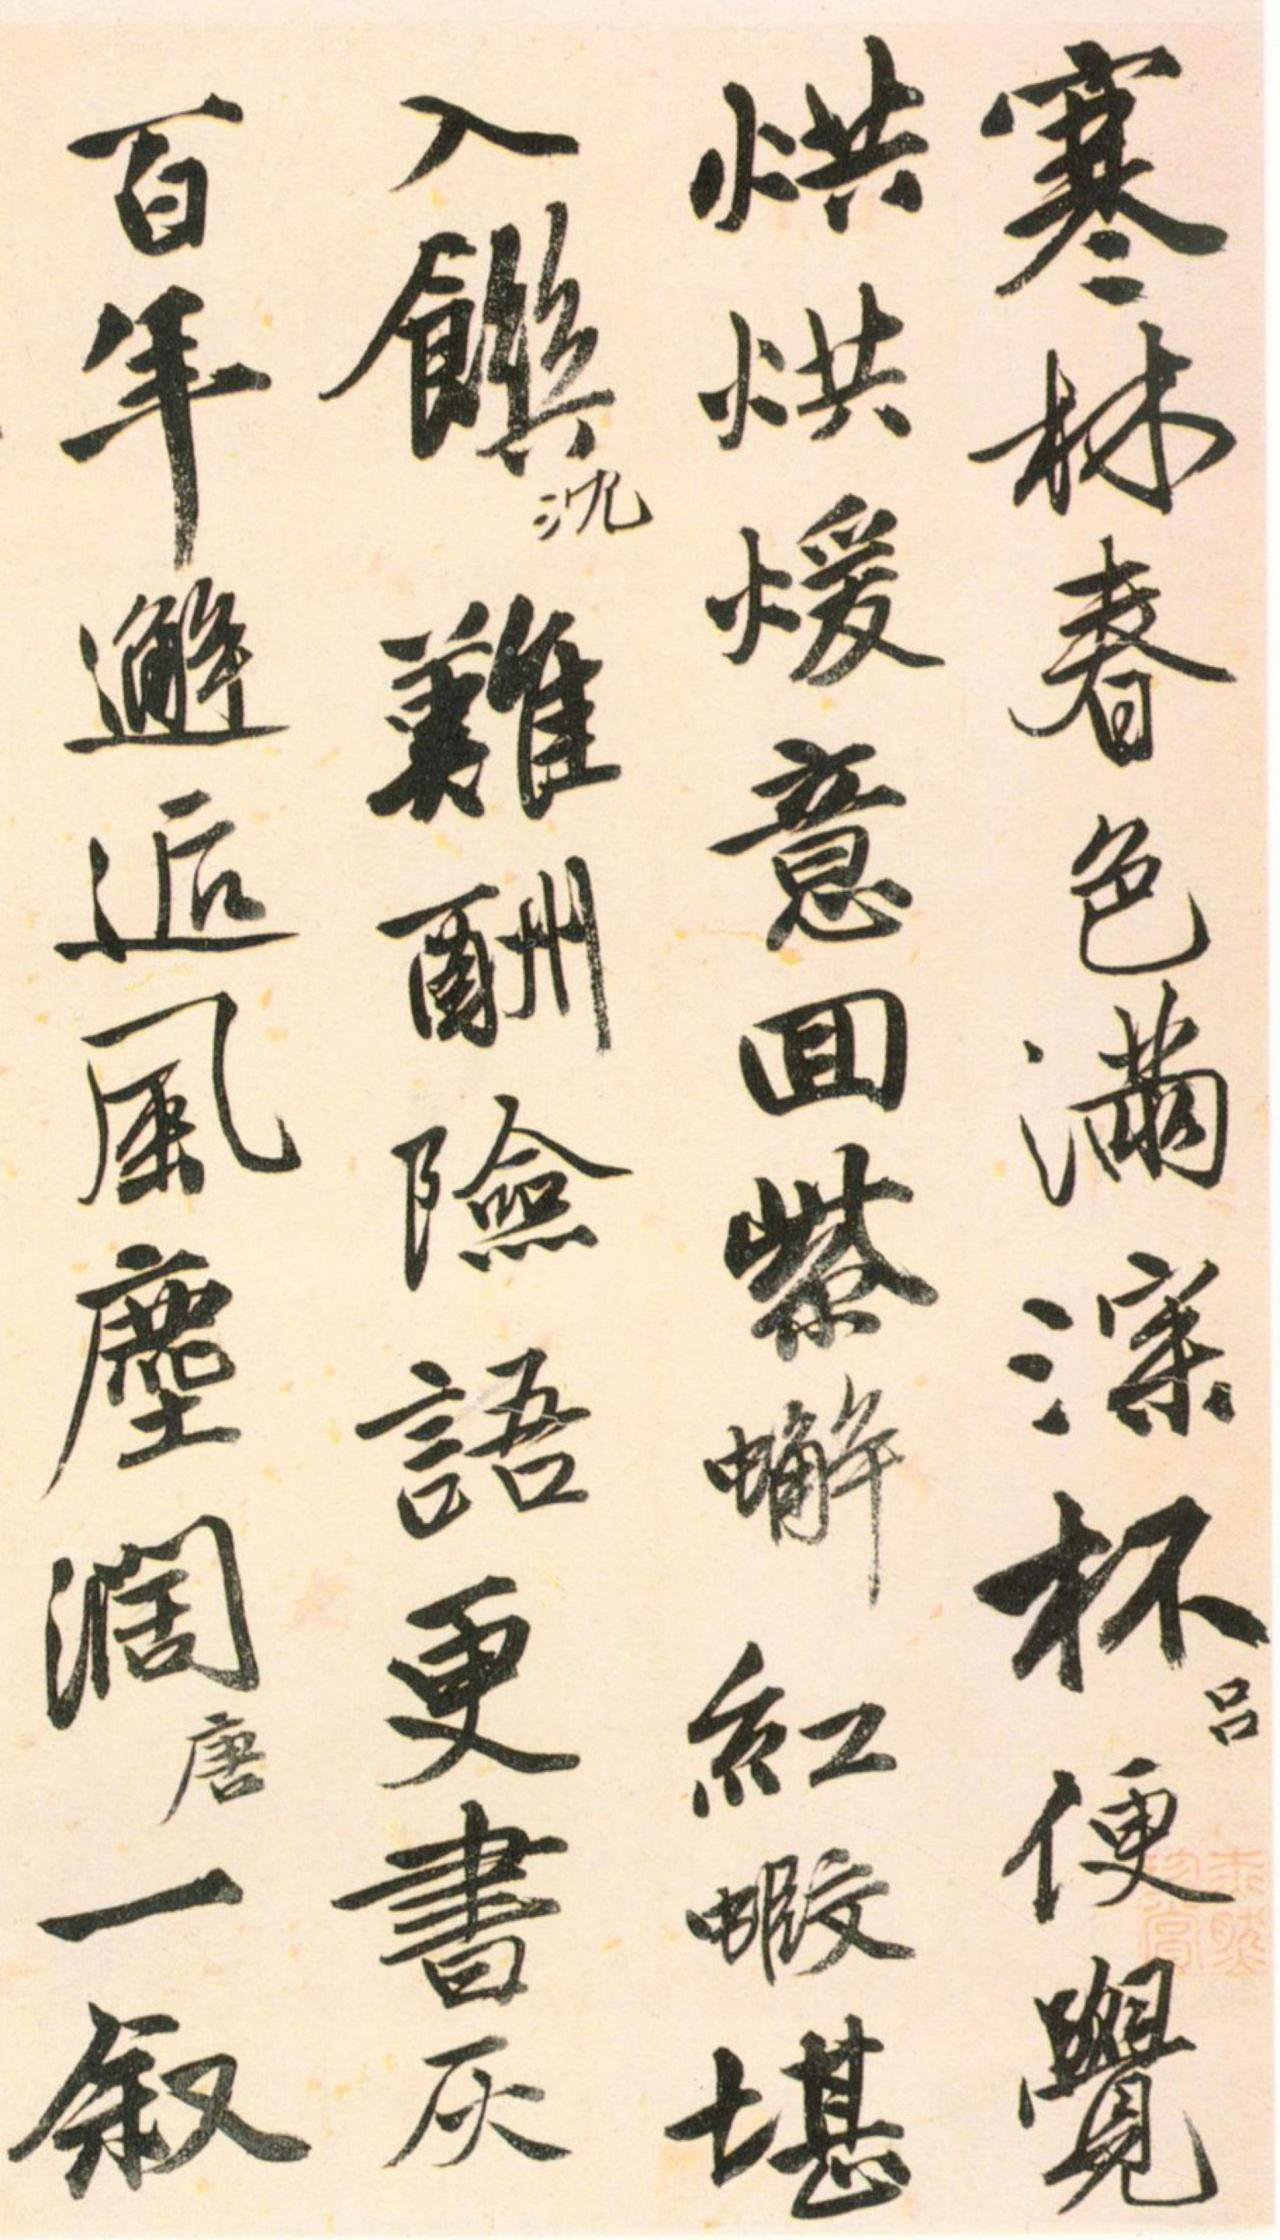 寒林春色滿深杯呂便覺
烘烘煖意回紫蠏紅蝦堪
入饌沈難酬險語更書灰
百年邂逅風塵濶唐一叙